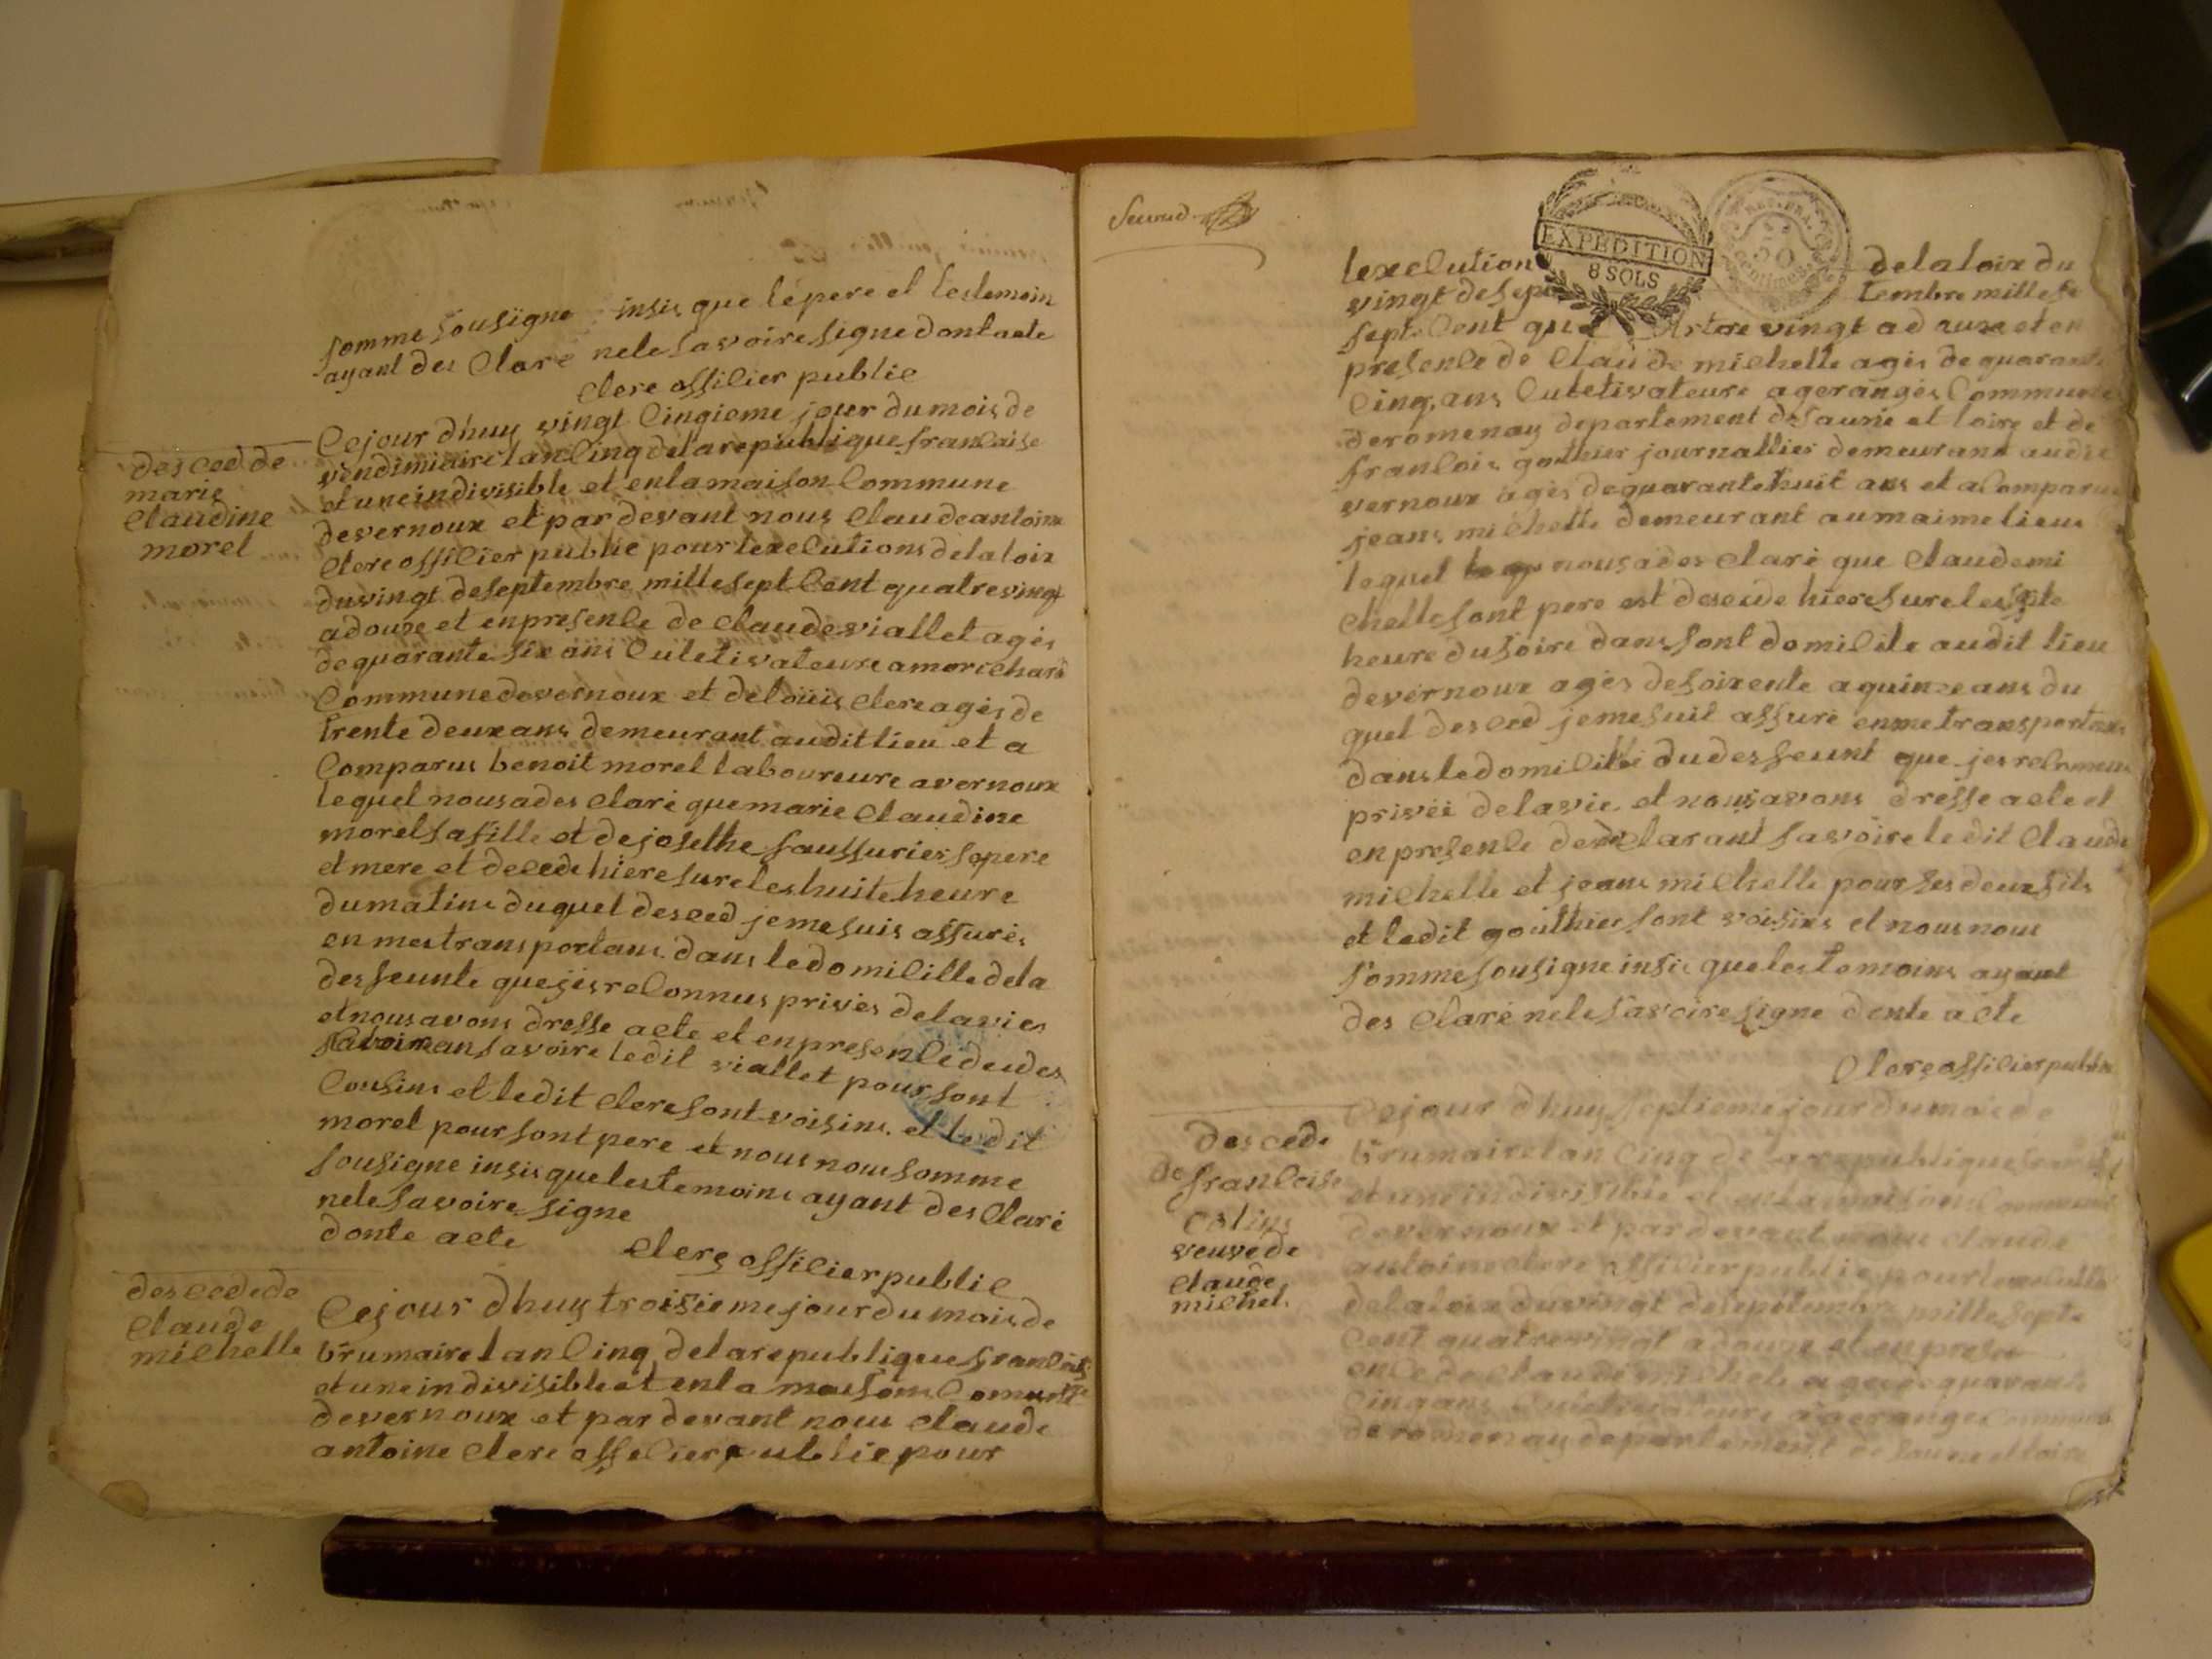 somme sousigne insis que lepere et lestemoin
ayant des Claré nele savoire signe dont acte
Clere offilier public
des ced de
marie
Claudine
morel
Cejour dhuy vingt Cingieme jour du mois de
vendimiaire lan Cinq dela republique francaise
et une indivisible et enla maison Commune
devernoux et par devant nous Claude antoine
Clere offilier public pour lexecutions dela loix
du vingt deseptembre mille sept Cent quatre vingt
adouze et enpresence de Claude viallet agés
dequarante six ans Culetivateure a
Commune devernoux et delouis Clere agés de
trente deux ans demeurant audit lieu et a
Comparus benoit morel laboureure avernoux
lequel nous ades Claré que marie Claudine
morel safille et dejosethe saussuries sepere
et mere et decede hiere sure les huite heure
dumatins duquel desced jeme suis assurés
en mes transportans dans ledomicille dela
desfeunte que jes reconnus privés delavies
et nous avons dresse acte et enpresence deudes
savoire ledit viallet pour sont
Cousins et ledit Clere sont voisins et ledit
morel pour sont pere et nous nous somme
sousigne insis que lestemoins ayant des Claré
nele savoire signe
donte acte Clere offilier public
des ced de de
Claude
michelle
Cejour dhuy troisieme jour du mois de
brumaire lan Cinq dela republique francais
et une indivisible et enla maisons Comune
devernoux et par devant nous Claude
antoine Clere offelier public pour
Second
EXPEDITION
8 SOLS
REP. FRA.
50
centimes
lexecution dela loix du
vingt desep tembre mille se
sept Cent qu atre vingt ad ouze et en
presence de Claude michelle agés de quarante
Cinq ans Culetivateure a geranges Commune
deromenay departement de saune et loire et de
francois gouthier journallier demeurant audit
vernoux agés dequarante huit ans et aComparus
jeans michelle demeurant au maime lieus
lequel nous ades Claré que Claude mi
chelle sont pere est desede hiere sure les septe
heure dusoire dans sont domicile audit lieu
devernoux agés desoixente a quinze ans du
quel desced jeme suit assuré enme transportans
dans ledomicile du desfeunt que jes
privéé delavie et nous avons dresse acte et
en presence des Clarant savoire ledit Claude
michelle et jeans michelle pour ses deux fils
et ledit gouthier sont voisins et nous nous
somme sousigne insis que les temoins ayant
des Claré nele savoire signe donte acte
Clere offilier public
des cede
de francoise
Colins
veuve de
Claude
michel
Cejour dhuy septieme jour du mois de
brumaire lan Cinq de la republique
et une indivisible et enla maisons Commune
devernoux et par devant nous Claude
antoine Clere offilier public pour
dela loix du vingt desepetembre mille septe
Cent quatre vingt adouze et en pres
ence de Claude michele agés de quarante
Cinq ans Culetivateure a geranges Commune
deromenay departement de saune et loire